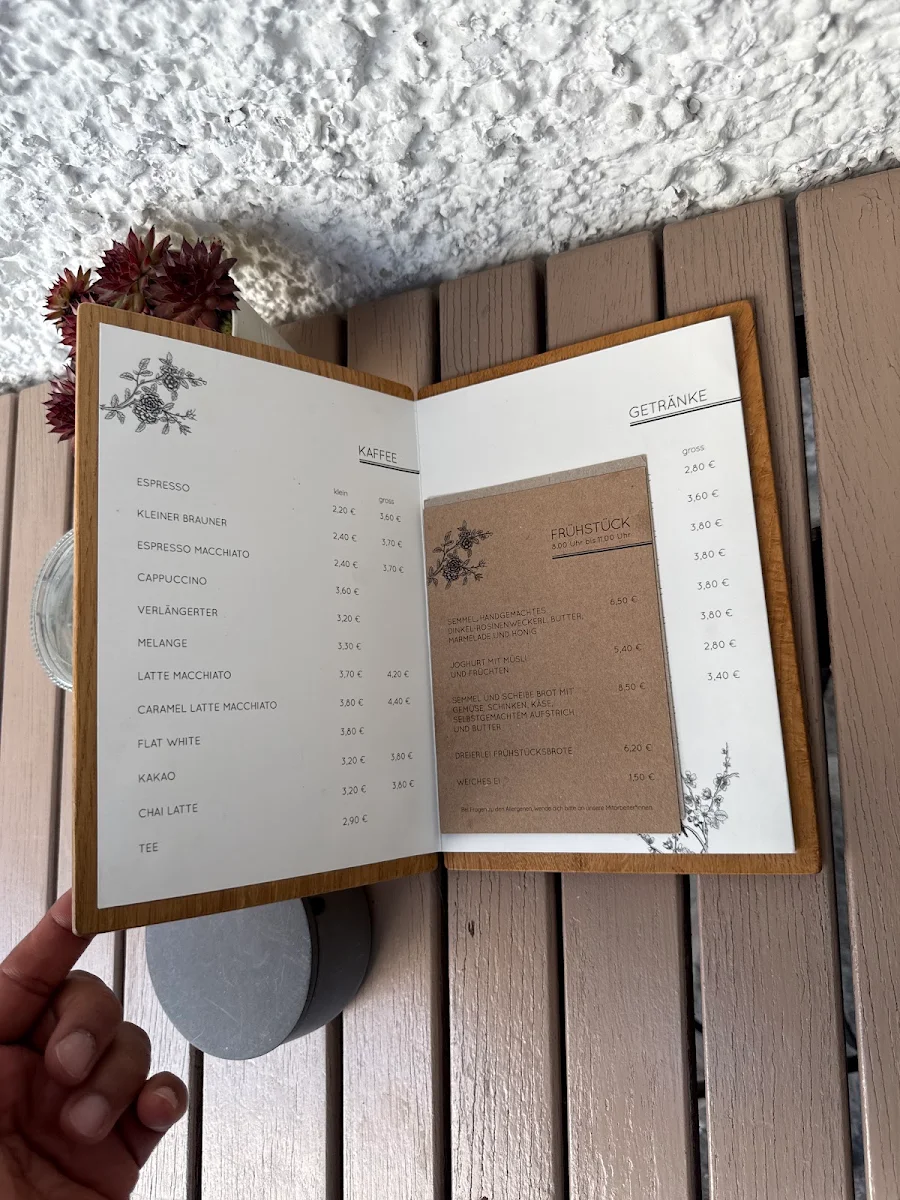 KAFFEE
klein gross
ESPRESSO 2,20 € 3,60 €
KLEINER BRAUNER 2,40 € 3,70 €
ESPRESSO MACCHIATO 2,40 € 3,70 €
CAPPUCCINO 3,60 €
VERLÄNGERTER 3,20 €
MELANGE 3,30 €
LATTE MACCHIATO 3,70 € 4,20 €
CARAMEL LATTE MACCHIATO 3,80 € 4,40 €
FLAT WHITE 3,80 €
KAKAO 3,20 € 3,80 €
CHAI LATTE 3,20 € 3,80 €
TEE 2,90 €
GETRÄNKE
gross
2,80 €
3,60 €
3,80 €
3,80 €
3,80 €
3,80 €
2,80 €
3,40 €
FRÜHSTÜCK
8.00 Uhr bis 11.00 Uhr
SEMMEL, HANDGEMACHTES 6,50 €
DINKEL-ROSINENWECKERL, BUTTER,
MARMELADE UND HONIG
JOGHURT MIT MÜSLI 5,40 €
UND FRÜCHTEN
SEMMEL UND SCHEIBE BROT MIT 8,50 €
GEMÜSE, SCHINKEN, KÄSE,
SELBSTGEMACHTEM AUFSTRICH
UND BUTTER
DREIERLEI FRÜHSTÜCKSBROTE 6,20 €
WEICHES EI 1,50 €
Bei Fragen zu den Allergenen, wende dich bitte an unsere Mitarbeiter*innen.